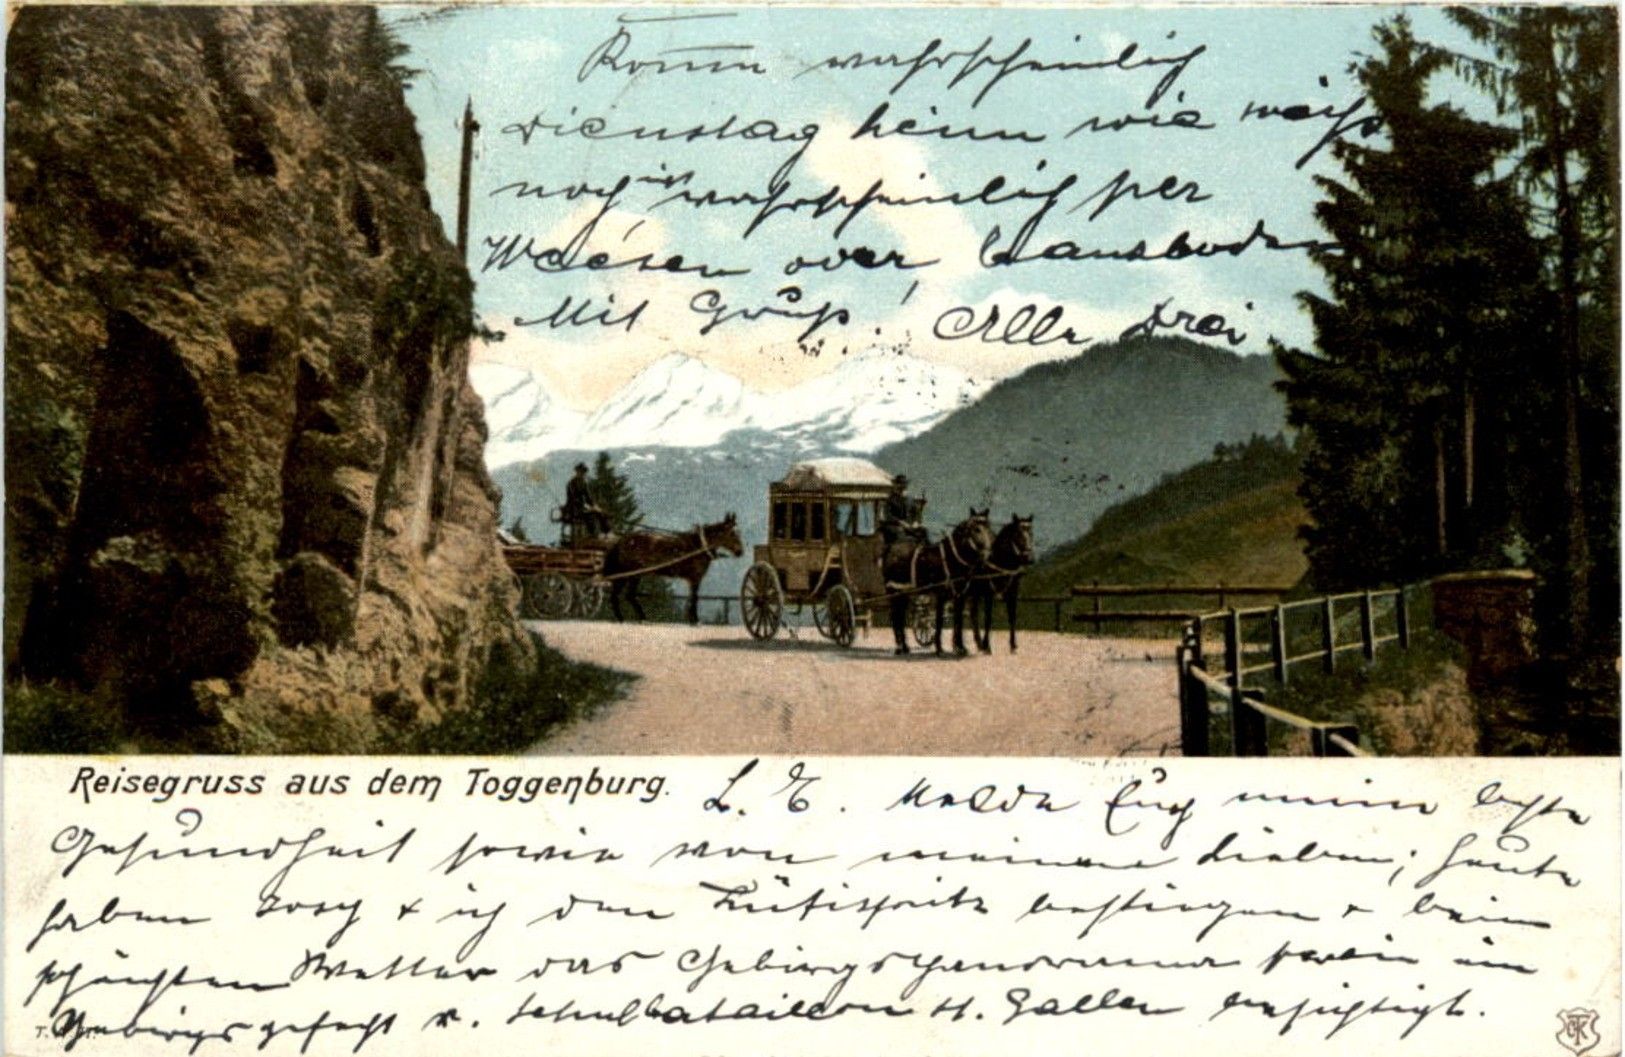 Komme wahrscheinlich
Dienstag heim wie weiss
noch nicht wahrscheinlich per
Weesen oder
Mit Gruß! Alle drei
Reisegruss aus dem Toggenburg.
L. E. Melde Euch meine beste
Gesundheit sowie von meinen Lieben; heute
haben Josy & ich den Lütispitz bestiegen & beim
schönsten Wetter das Gebirgspanorama sowie ein
Gebirgsgefecht v. Schulbataillon St. Gallen besichtigt.